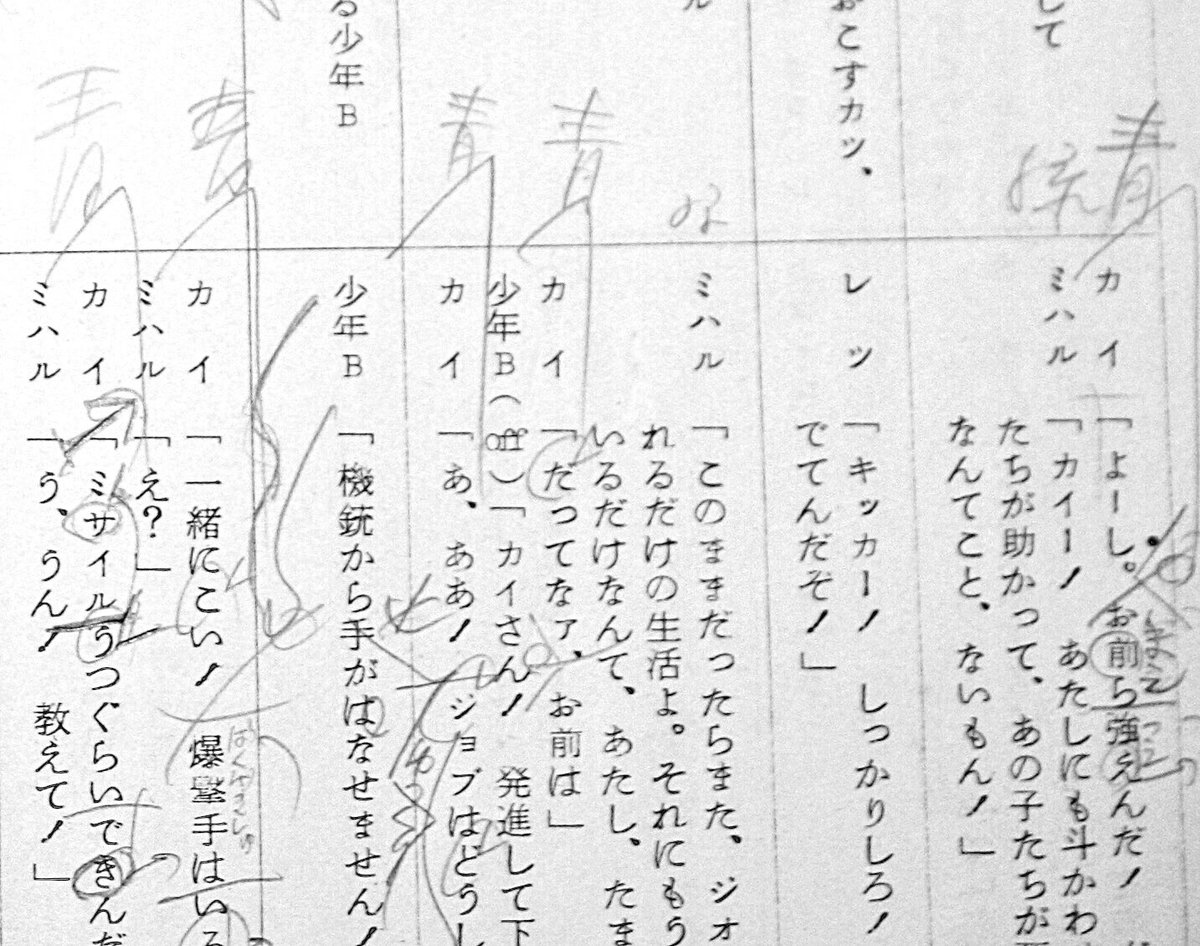 して
おこすカツ、
ル
る少年B
カイ「よーし。お前ら強えんだ！
ミハル「カイー！　あたしにも斗かわ
たちが助かって、あの子たちが
なんてこと、ないもん！」
レツ「キッカー！　しっかりしろ！
でてんだぞ！」
ミハル「このままだったらまた、ジオ
れるだけの生活よ。それにもう
いるだけなんて、あたし、たま
カイ「だってなァ、お前は」
少年B（off）「カイさん！　発進して下
カイ「あ、ああ！　ジョブはどうし
少年B「機銃から手がはなせません！
カイ「一緒にこい！　爆撃手はいろ
ミハル「え？」
カイ「ミサイルうつぐらいできんだ
ミハル「う、うん！　教えて！」
青
青
青
青
青
ばくげきしゅ